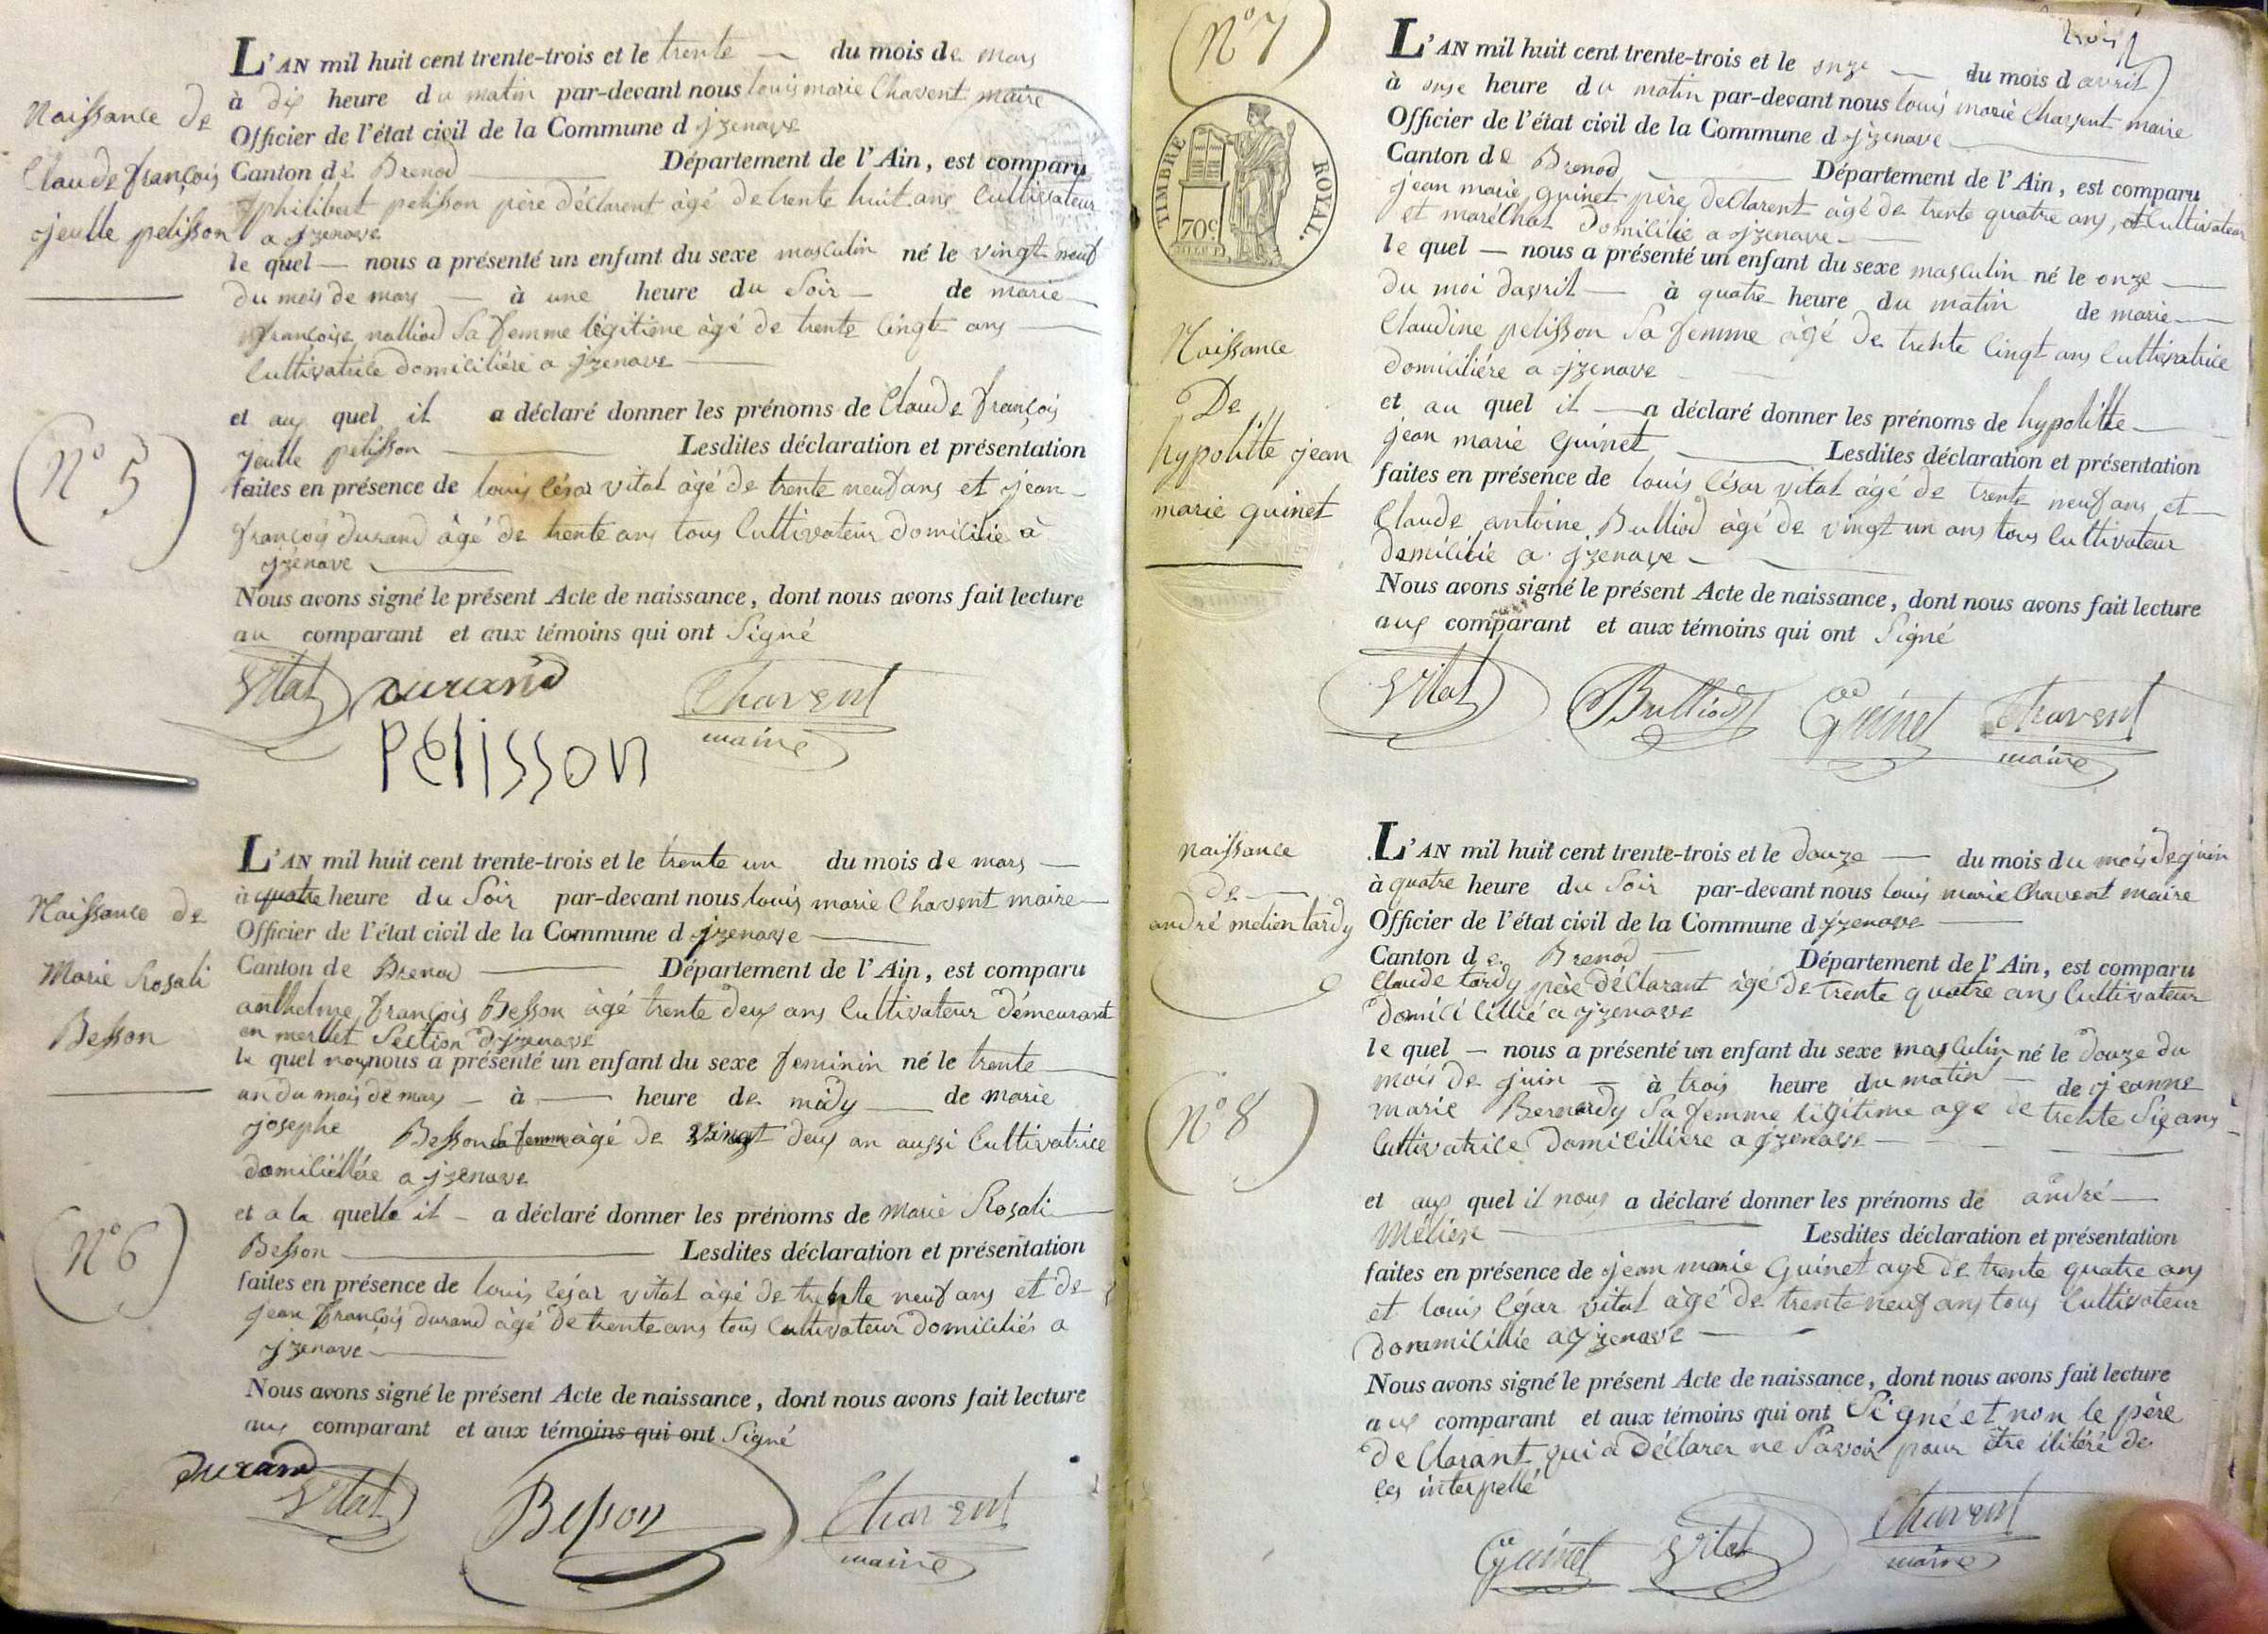 Naissance de
Claude françois
jeulle pelisson
(N° 5)
L'AN mil huit cent trente-trois et le trente du mois de mars
à dix heure du matin par-devant nous louis marie Chavent maire
Officier de l'état civil de la Commune d jzenave
Canton de Brenod Département de l'Ain, est comparu
philibert pelisson père déclarent âgé de trente huit ans Cultivateur
a jzenave
le quel nous a présenté un enfant du sexe masculin né le vingt neuf
du mois de mars à une heure du Soir de marie
françoise nalliod Sa femme légitime âgé de trente Cingt ans
Cultivatrice domicilière a jzenave
et aux quel il a déclaré donner les prénoms de Claude françois
jeulle pelisson Lesdites déclaration et présentation
faites en présence de louis César vital âgé de trente neuf ans et jean
françois durand âgé de trente ans tous Cultivateur domicilié à
jzénave
Nous avons signé le présent Acte de naissance, dont nous avons fait lecture
au comparant et aux témoins qui ont Signé
Vital Durand Chavent
maire
Pélisson
Naissance de
Marie Rosali
Besson
(N° 6)
L'AN mil huit cent trente-trois et le trente un du mois de mars
à quatre heure du Soir par-devant nous louis marie Chavent maire
Officier de l'état civil de la Commune d jzenave
Canton de Brenod Département de l'Ain, est comparu
anthelme françois Besson âgé trente deux ans Cultivateur démeurant
en merlet Section d'jzenave
le quel nous nous a présenté un enfant du sexe feminin né le trente
un du mois de mars à heure de midy de marie
josephe Besson Sa femme âgé de vingt deux an aussi Cultivatrice
domiciliére a jzenave
et a la quelle il a déclaré donner les prénoms de Marie Rosali
Besson Lesdites déclaration et présentation
faites en présence de louis César vital âgé de trente neuf ans et de
jean françois durand âgé de trente ans tous Cultivateur domiciliés a
jzénave
Nous avons signé le présent Acte de naissance, dont nous avons fait lecture
aux comparant et aux témoins qui ont Signé
Durand
Vital Besson Chavent
maire
trois
(N° 7)
TIMBRE ROYAL.
70c
Naissance
De
hypolitte jean
marie guinet
L'AN mil huit cent trente-trois et le onze du mois d avril
à onze heure du matin par-devant nous louis marie Chavent maire
Officier de l'état civil de la Commune d jzenave
Canton de Brenod Département de l'Ain, est comparu
jean marie guinet père declarent âgé de trente quatre ans, et Cultivateur
et maréchal domicilié a jzenave
le quel nous a présenté un enfant du sexe masculin né le onze
du moi davril à quatre heure du matin de marie
Claudine pelisson Sa femme âgé de trente Cingt ans Cultivatrice
domiciliére a jzenave
et au quel il a déclaré donner les prénoms de hypolitte
jean marie Guinet Lesdites déclaration et présentation
faites en présence de louis César vital âgé de trente neuf ans et
Claude antoine Bulliod âgé de vingt un ans tous Cultivateur
domicilié a jzenave
Nous avons signé le présent Acte de naissance, dont nous avons fait lecture
aux comparant et aux témoins qui ont Signé
Vital Bulliod Guinet Chavent
maire
naissance
de
andré melien tardy
(N° 8)
L'AN mil huit cent trente-trois et le douze du mois du mois de juin
à quatre heure du Soir par-devant nous louis marie Chavent maire
Officier de l'état civil de la Commune d jzenave
Canton de Brenod Département de l'Ain, est comparu
Claude tardy père déClarant âgé de trente quatre ans Cultivateur
domicilillié a jzenave
le quel nous a présenté un enfant du sexe masculin né le douze du
mois de juin à trois heure du matin de jeanne
marie Bernardy Sa femme légitime age de trente Sig ans
Cultivatrice domicillière a jzenave
et aux quel il nous a déclaré donner les prénoms de andré
Méliere Lesdites déclaration et présentation
faites en présence de jean marie Guinet agé de trente quatre ans
et louis César vital âgé de trente neuf ans tous Cultivateur
doramicillié a jzenave
Nous avons signé le présent Acte de naissance, dont nous avons fait lecture
aux comparant et aux témoins qui ont Signé et non le père
de Clarant qui a déClarer ne Savoir pour être ilitéré de
ces interpellé
Guinet Vital Chavent
maire